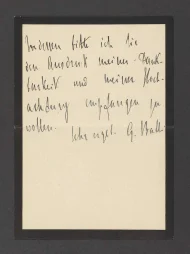 bitte ich Sie
den Ausdruck meiner Dank-
barkeit und meiner Hoch-
achtung empfangen zu
wollen.
Ihr ergeb. G.